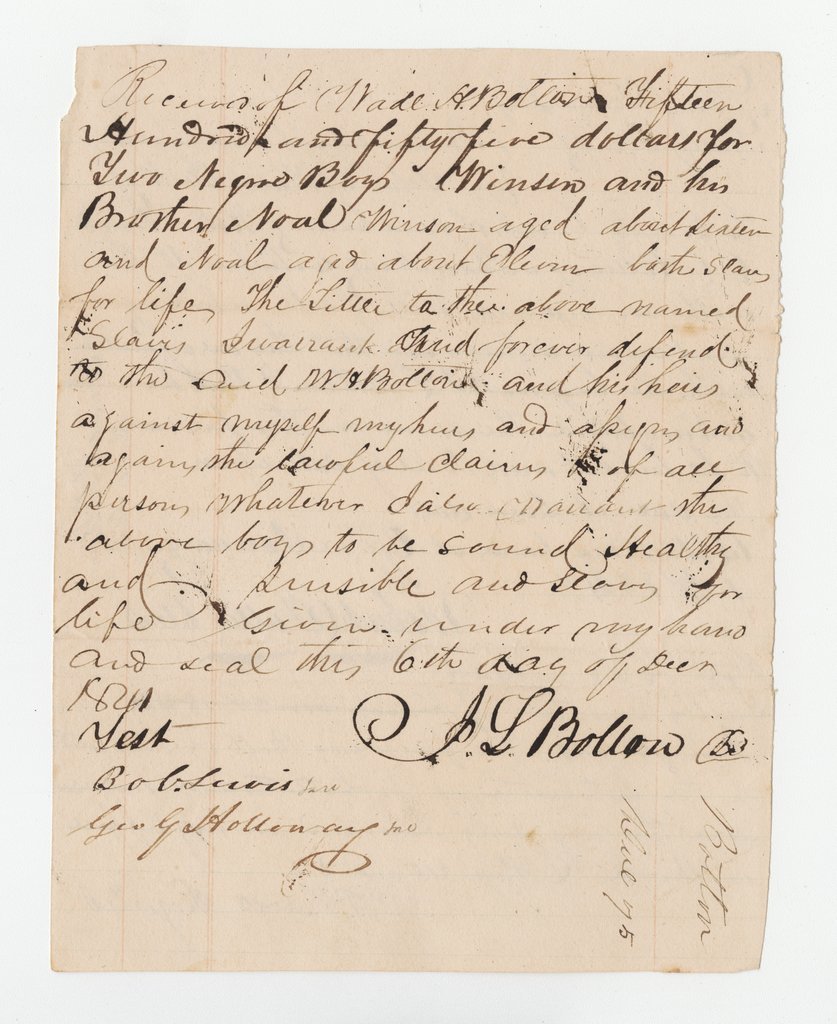 Received of Wade H. Bolton Fifteen
Hundred and fifty five dollars for
Two Negro Boys Winsen and his
Brother Noal Winson aged about sixteen
and Noal aged about Eleven both slaves
for life, The Tittle to the above named
Slaves I warrant And forever defend
to the said W. H. Bolton, and his heirs
against myself my heirs and assigns and
against the lawful claims of all
persons whatever I also Warrant the
above boys to be Sound Healthy
and Sensible and Slaves for
life Given under my hand
and seal this 6th day of Decr
1841
Test J. L. Bolton
Bo C. Lewis
Geo G Holloway
Bolton